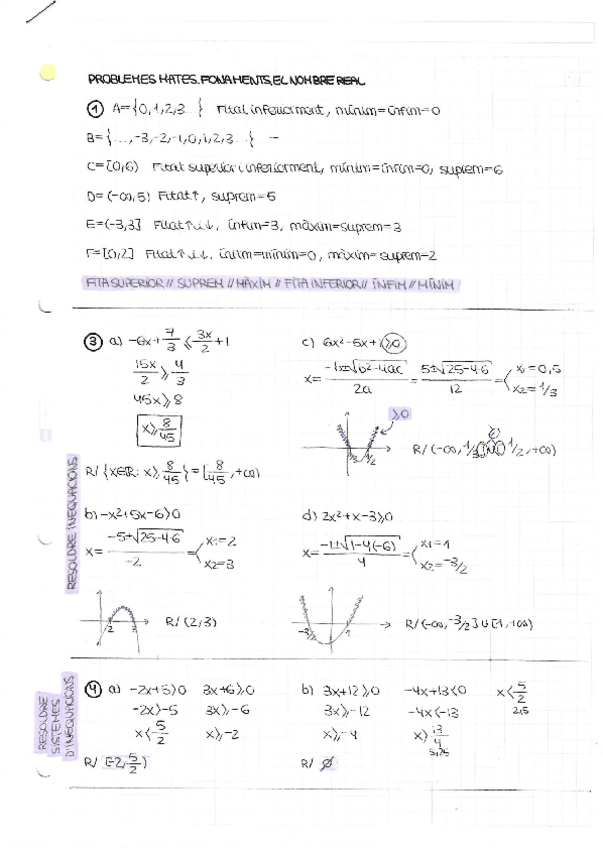 PROBLEMES MATES. FONAMENTS, EL NOMBRE REAL
① A={0,1,2,3...} Fitat inferiorment, mínim=ínfim=0
B={...,-3,-2,-1,0,1,2,3...} —
C=[0,6) Fitat superior i inferiorment, mínim=ínfim=0, suprem=6
D=(-∞,5) Fitat↑, suprem=5
E=(-3,3] Fitat↑i↓, ínfim=3, màxim=suprem=3
F=[0,2] Fitat↑i↓, ínfim=mínim=0, màxim=suprem=2
FITA SUPERIOR // SUPREM // MÀXIM // FITA INFERIOR // ÍNFIM // MÍNIM
RESOLDRE INEQUACIONS
③ a) -6x+7/3 ≤ 3x/2+1
15x/2 ≥ 4/3
45x ≥ 8
x ≥ 8/45
R/ {x∈R: x ≥ 8/45} = [8/45, +∞)
b) -x²+5x-6>0
x= -5±√25-4·6 / -2 = x1=2 x2=3
2 3 R/ (2,3)
c) 6x²-5x+1≥0
x= -b±√b²-4ac / 2a = 5±√25-4·6 / 12 = x1=0,5 x2=1/3
≥0
1/3 1/2 R/ (-∞, 1/3] ∪ [1/2, +∞)
d) 2x²+x-3≥0
x= -1±√1-4(-6) / 4 = x1=1 x2=-3/2
-3/2 1 R/ (-∞, -3/2] ∪ [1, +∞)
RESOLDRE SISTEMES D'INEQUACIONS
④ a) -2x+5>0 3x+6≥0
-2x>-5 3x≥-6
x<5/2 x≥-2
R/ [-2, 5/2)
b) 3x+12≥0 -4x+13<0 x<5/2
3x≥-12 -4x<-13 2,5
x≥-4 x>13/4
R/ ∅